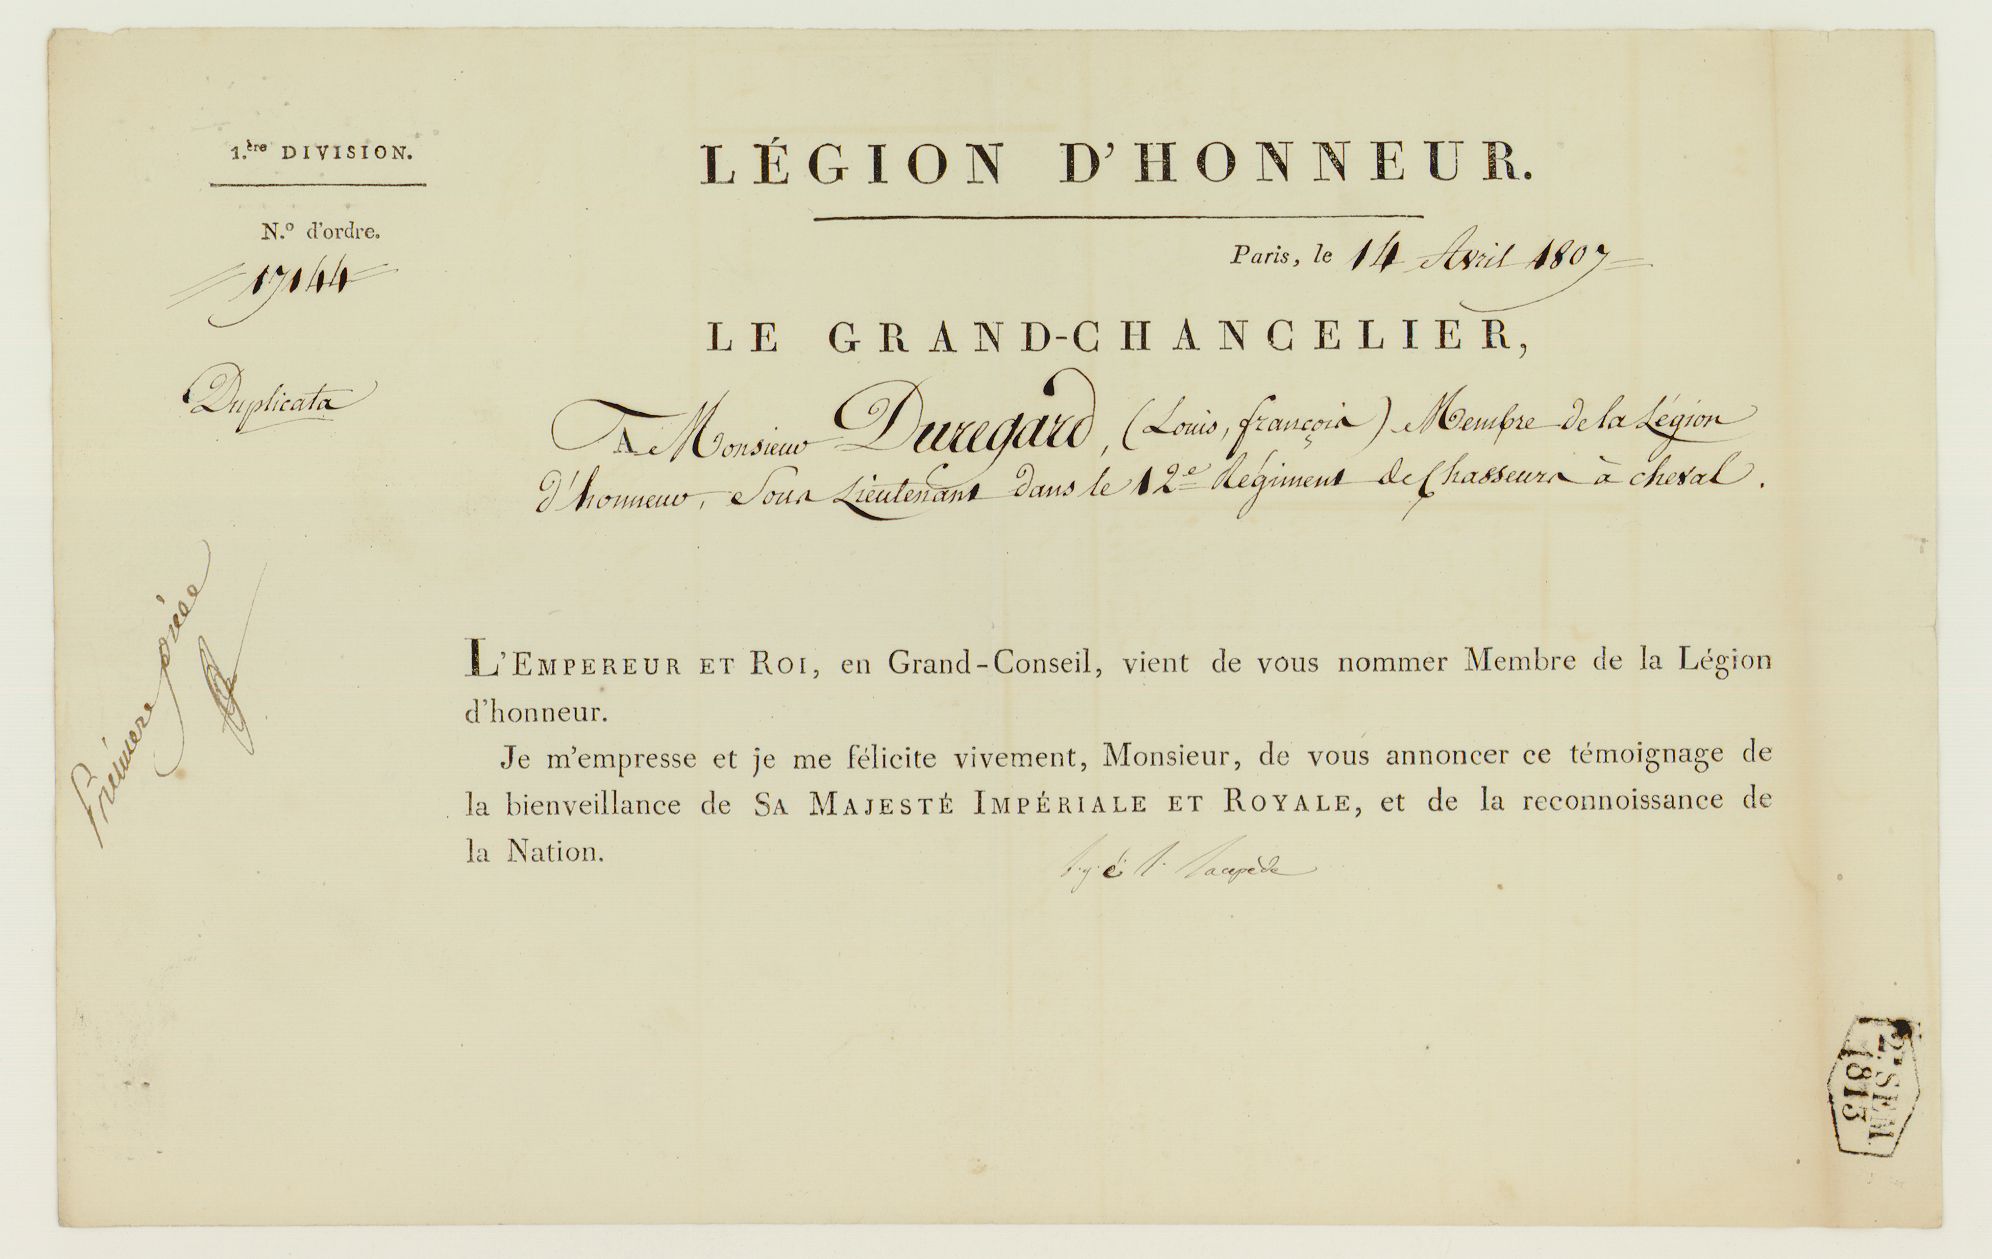 1.ère DIVISION.
N.º d'ordre.
17144
Duplicata
LÉGION D'HONNEUR.
Paris, le 14 Avril 1807
LE GRAND-CHANCELIER,
A Monsieur Duregard, (Louis, françois) Membre de la Légion
d'honneur, Sous Lieutenant dans le 12e Régiment de Chasseurs à cheval.
L'EMPEREUR ET ROI, en Grand-Conseil, vient de vous nommer Membre de la Légion
d'honneur.
Je m'empresse et je me félicite vivement, Monsieur, de vous annoncer ce témoignage de
la bienveillance de SA MAJESTÉ IMPÉRIALE ET ROYALE, et de la reconnoissance de
la Nation.
Lacepède
Première pièce
2e SEM
1815